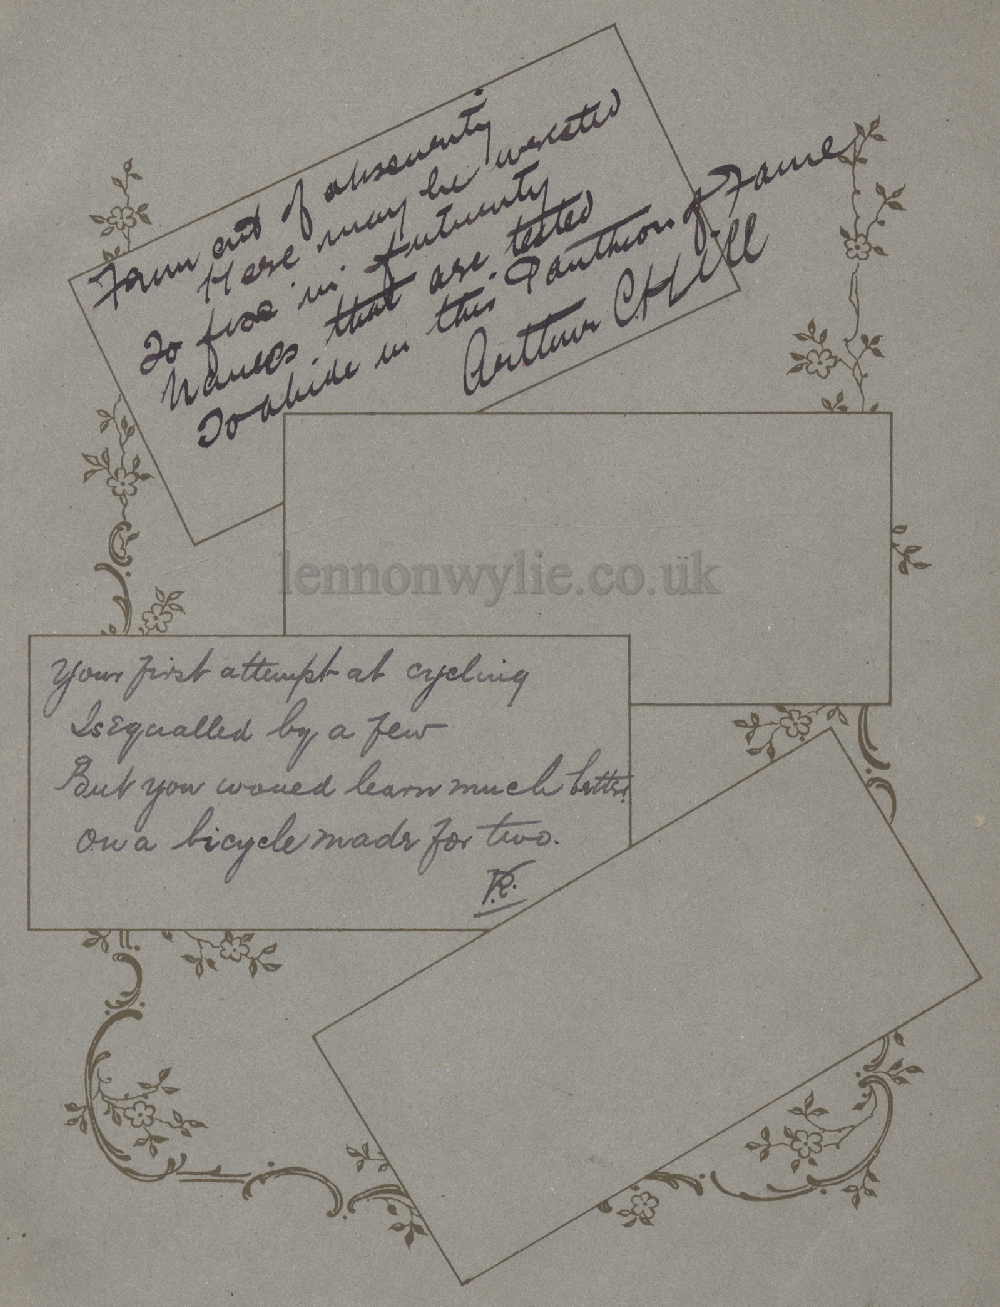 From out of obscurity
Here may be wrested
To fix in futurity
Names that are tested
To abide in this Pantheon of Fame
Arthur C Hill
lennonwylie.co.uk
Your first attempt at cycling
Is equalled by a few
But you woued learn much better
on a bicycle made for two.
R.